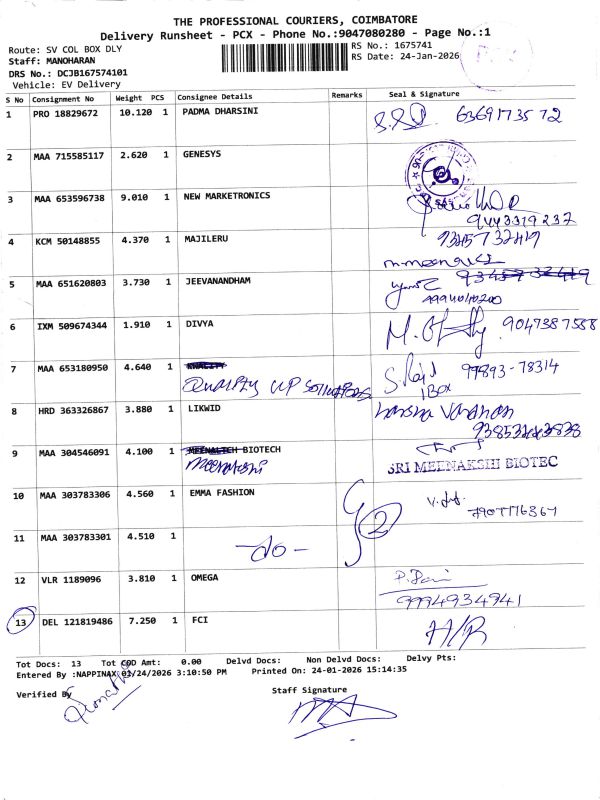 THE PROFESSIONAL COURIERS, COIMBATORE
Delivery Runsheet - PCX - Phone No.:9047080280 - Page No.:1
Route: SV COL BOX DLY
RS No.: 1675741
Staff: MANOHARAN
RS Date: 24-Jan-2026
DRS No.: DCJB167574101
Vehicle: EV Delivery
S No Consignment No Weight PCS Consignee Details Remarks Seal & Signature
1 PRO 18829672 10.120 1 PADMA DHARSINI 6369173572
2 MAA 715585117 2.620 1 GENESYS
3 MAA 653596738 9.010 1 NEW MARKETRONICS
9443319237
4 KCM 50148855 4.370 1 MAJILERU 9345732419
5 MAA 651620803 3.730 1 JEEVANANDHAM
6 IXM 509674344 1.910 1 DIVYA 9047387558
7 MAA 653180950 4.640 1 KWALITY 99893-78314
Quality UP Solutions
8 HRD 363326867 3.880 1 LIKWID Harsha Vardhan
9 MAA 304546091 4.100 1 MEENALICH BIOTECH
Meenakshi SRI MEENAKSHI BIOTEC
10 MAA 303783306 4.560 1 EMMA FASHION 2
11 MAA 303783301 4.510 1
-do-
12 VLR 1189096 3.810 1 OMEGA
9994934941
13 DEL 121819486 7.250 1 FCI H/R
Tot Docs: 13 Tot COD Amt: 0.00 Delvd Docs: Non Delvd Docs: Delvy Pts:
Entered By :NAPPINAX 01/24/2026 3:10:50 PM Printed On: 24-01-2026 15:14:35
Verified By
Staff Signature